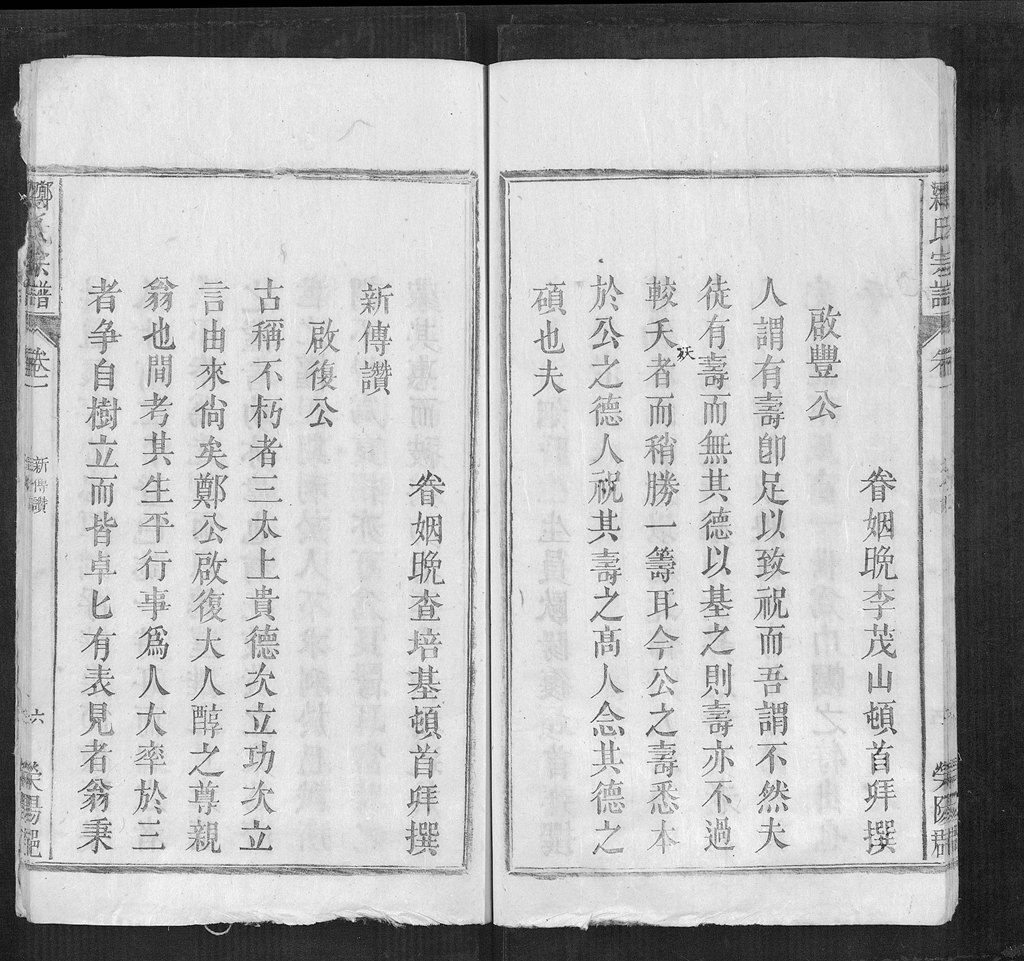 鄭氏宗譜
卷一
滎陽郡
啟豐公
眷姻晚李茂山頓首拜撰
人謂有壽卽足以致祝而吾謂不然夫
徒有壽而無其德以基之則壽亦不過
較夭者而稍勝一籌耳今公之壽悉本
於公之德人祝其壽之高人念其德之
碩也夫
新傳讚
啟復公
眷姻晚查培基頓首拜撰
古稱不朽者三太上貴德次立功次立
言由來尙矣鄭公啟復大人醇之尊親
翁也間考其生平行事爲人大率於三
者争自樹立而皆卓匕有表見者翁秉
鄭氏宗譜
卷一
新傳讚
六
滎陽郡